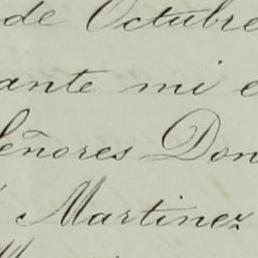 de Octubre
ante mi e
Señores Don
Martinez